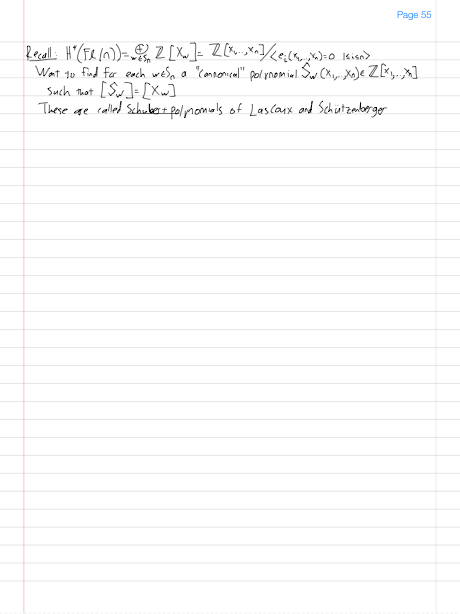 Page 55
Recall: H*(Fl(n)) = ⊕_{w∈S_n} ℤ[X_w] = ℤ[x_1,...,x_n]/<e_i(x_1,...,x_n)=0 1≤i≤n>
Want to find for each w∈S_n a "cannonical" polynomial S_w(x_1,...,x_n)∈ℤ[x_1,...,x_n]
such that [S_w]=[X_w]
These are called Schubert polynomials of Lascoux and Schützenberger